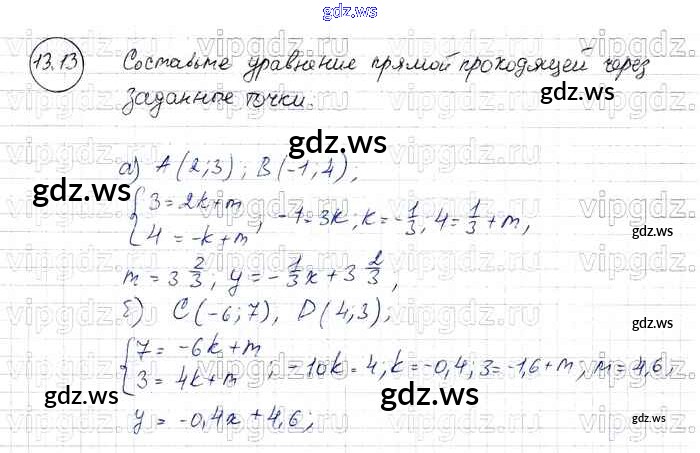 gdz.ws
13.13 Составьте уравнение прямой проходящей через
gdz.ws
заданные точки.
gdz.ws
а) A(2;3); B(-1;4);
gdz.ws gdz.ws
{3=2k+m
4=-k+m; -1=3k, k=-1/3; 4=1/3+m,
gdz.ws
m=3 2/3; y=-1/3x+3 2/3,
б) C(-6;7), D(4;3);
gdz.ws
{7=-6k+m
3=4k+m; -10k=4, k=-0,4; 3=-1,6+m, m=4,6,
gdz.ws gdz.ws
gdz.ws
y=-0,4x+4,6;